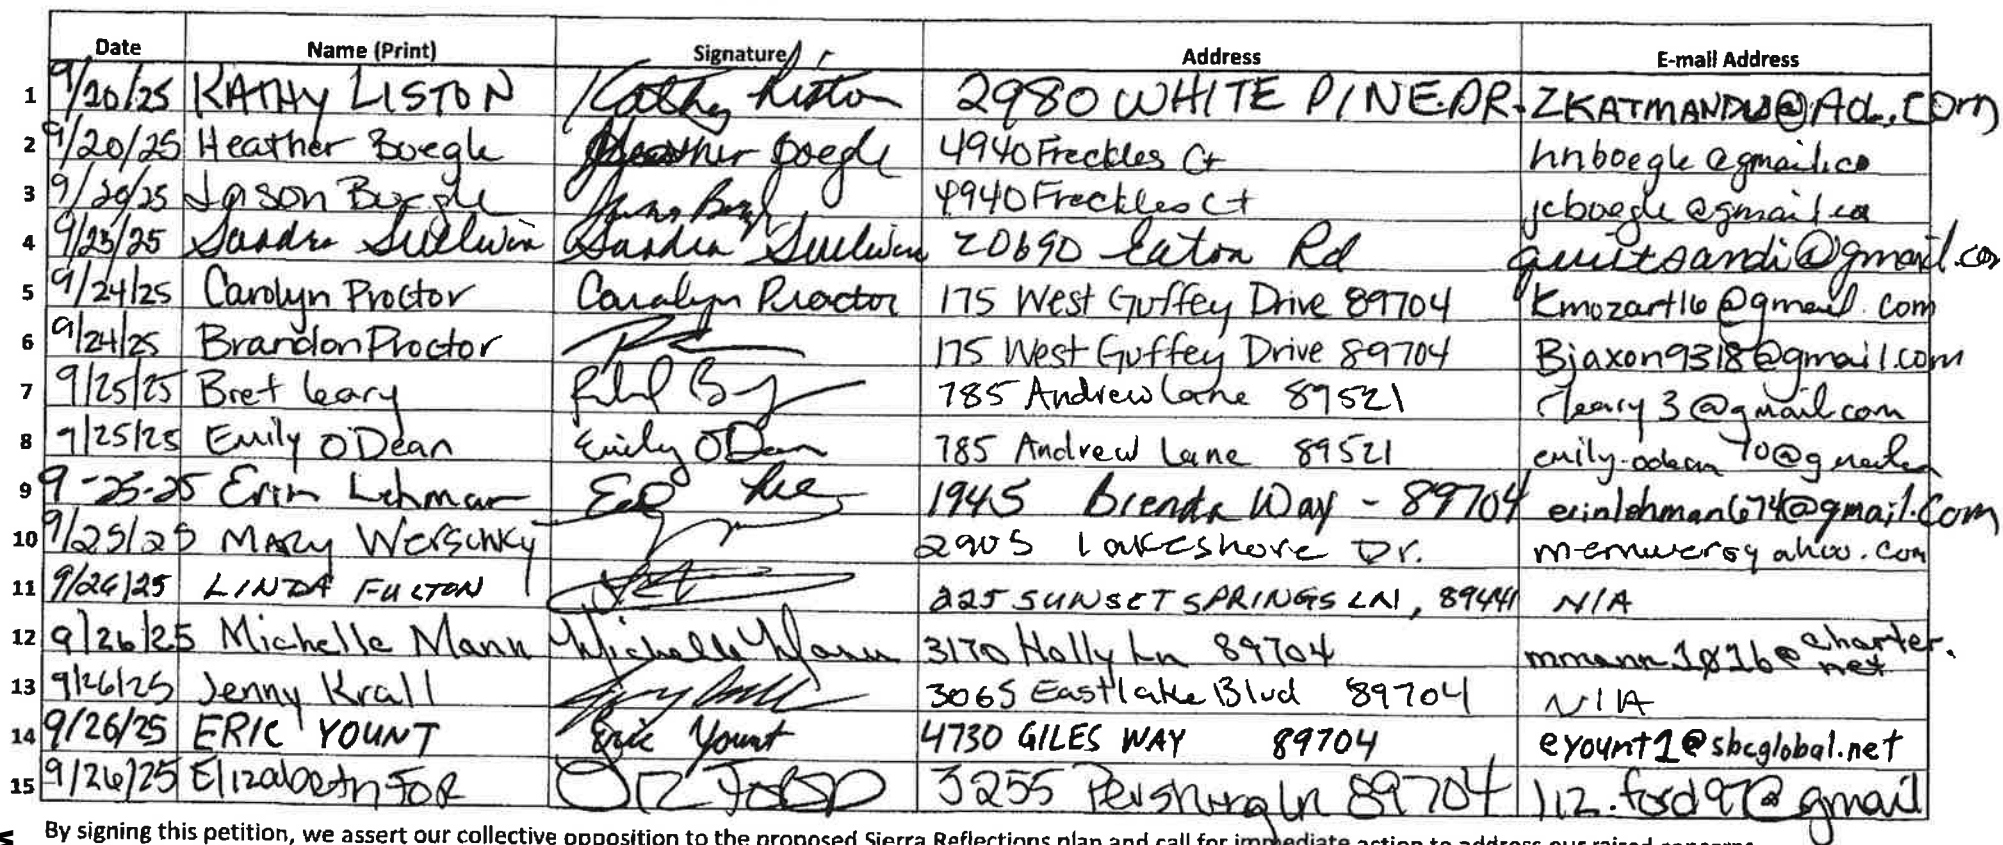 Date Name (Print) Signature Address E-mail Address
1 9/20/25 KATHY LISTON Kathy Liston 2980 WHITE PINE DR. ZKATMANDU@AOL.COM
2 9/20/25 Heather Boegle Heather Boegle 4940 Freckles Ct hnboegle@gmail.co
3 9/20/25 Jason Boegle 4940 Freckles Ct jcboegle@gmail.co
4 9/23/25 Sandra Sullivan Sandra Sullivan 20690 Eaton Rd
5 9/24/25 Carolyn Proctor Carolyn Proctor 175 West Guffey Drive 89704 Kmozart16@gmail.com
6 9/24/25 Brandon Proctor 175 West Guffey Drive 89704 Bjaxon9318@gmail.com
7 9/25/25 Bret Leary 785 Andrew Lane 89521 rleary3@gmail.com
8 9/25/25 Emily O'Dean Emily O'Dean 785 Andrew Lane 89521
9 9-25-25 Erin Lehman 1945 Brenda Way - 89704 erinlehman674@gmail.com
10 9/25/25 MARY WERSCHKY 2905 Lakeshore Dr.
11 9/26/25 LINDA FULTON 225 SUNSET SPRINGS LN, 89441 N/A
12 9/26/25 Michelle Mann Michelle Mann 3170 Holly Ln 89704 mmann1016@charter.net
13 9/26/25 Jenny Krall 3065 Eastlake Blvd 89704 N/A
14 9/26/25 ERIC YOUNT Eric Yount 4730 GILES WAY 89704 eyount1@sbcglobal.net
15 9/26/25 Elizabeth FOR 3255 Pershing Ln 89704 liz.ford97@gmail
By signing this petition, we assert our collective opposition to the proposed Sierra Reflections plan and call for immediate action to address our raised concerns